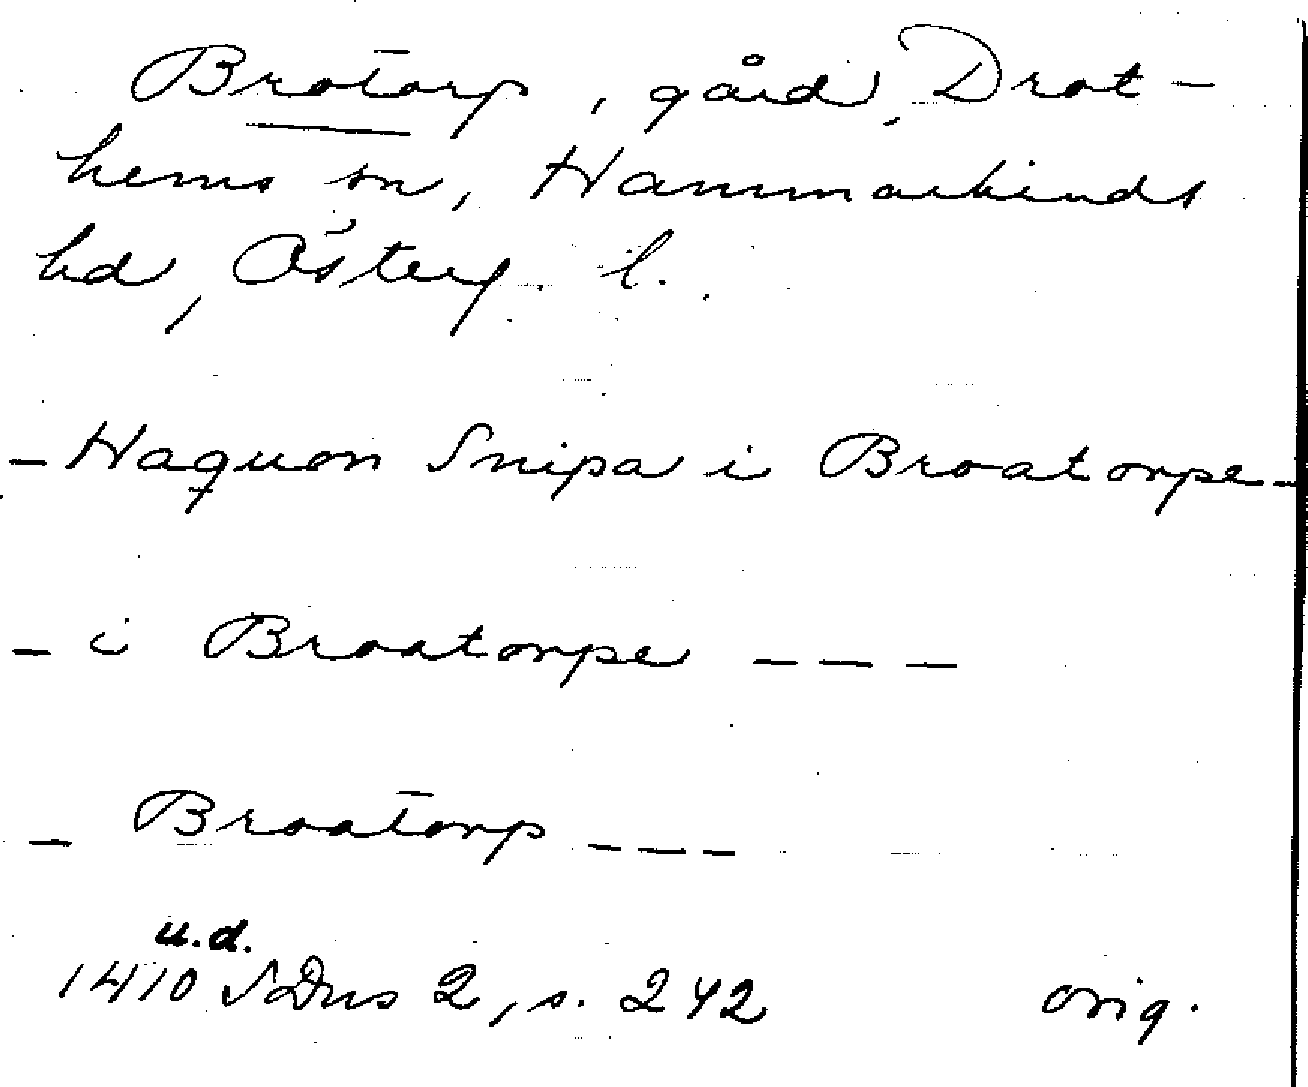 Brotorp, gård, Drot-
hems sn, Hammarkinds
hd, Österg. l.
- Haquon Snipa i Broatorpe -
- i Broatorpe - - -
- Broatorp - - -
u.d.
1410 SDns 2, s. 242 orig.